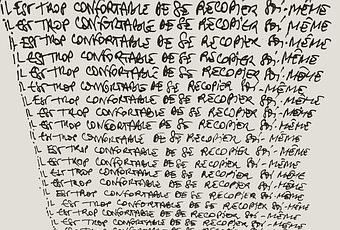 IL EST TROP CONFORTABLE DE SE RECOPIER SOI-MÊME
IL EST TROP CONFORTABLE DE SE RECOPIER SOI-MÊME
IL EST TROP CONFORTABLE DE SE RECOPIER SOI-MÊME
IL EST TROP CONFORTABLE DE SE RECOPIER SOI-MÊME
IL EST TROP CONFORTABLE DE SE RECOPIER SOI-MÊME
IL EST TROP CONFORTABLE DE SE RECOPIER SOI-MÊME
IL EST TROP CONFORTABLE DE SE RECOPIER SOI-MÊME
IL EST TROP CONFORTABLE DE SE RECOPIER SOI-MÊME
IL EST TROP CONFORTABLE DE SE RECOPIER SOI-MÊME
IL EST TROP CONFORTABLE DE SE RECOPIER SOI-MÊME
IL EST TROP CONFORTABLE DE SE RECOPIER SOI-MÊME
IL EST TROP CONFORTABLE DE SE RECOPIER SOI-MÊME
IL EST TROP CONFORTABLE DE SE RECOPIER SOI-MÊME
IL EST TROP CONFORTABLE DE SE RECOPIER SOI-MÊME
IL EST TROP CONFORTABLE DE SE RECOPIER SOI-MÊME
IL EST TROP CONFORTABLE DE SE RECOPIER SOI-MÊME
IL EST TROP CONFORTABLE DE SE RECOPIER SOI-MÊME
IL EST TROP CONFORTABLE DE SE RECOPIER SOI-MÊME